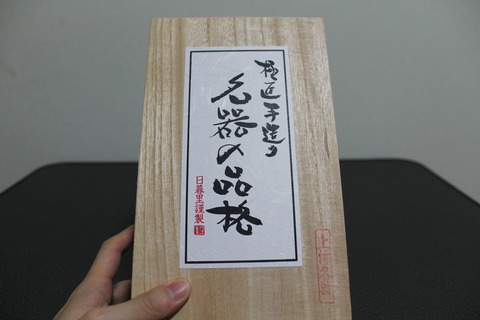 極匠手造り
名器の品格
日暮里謹製